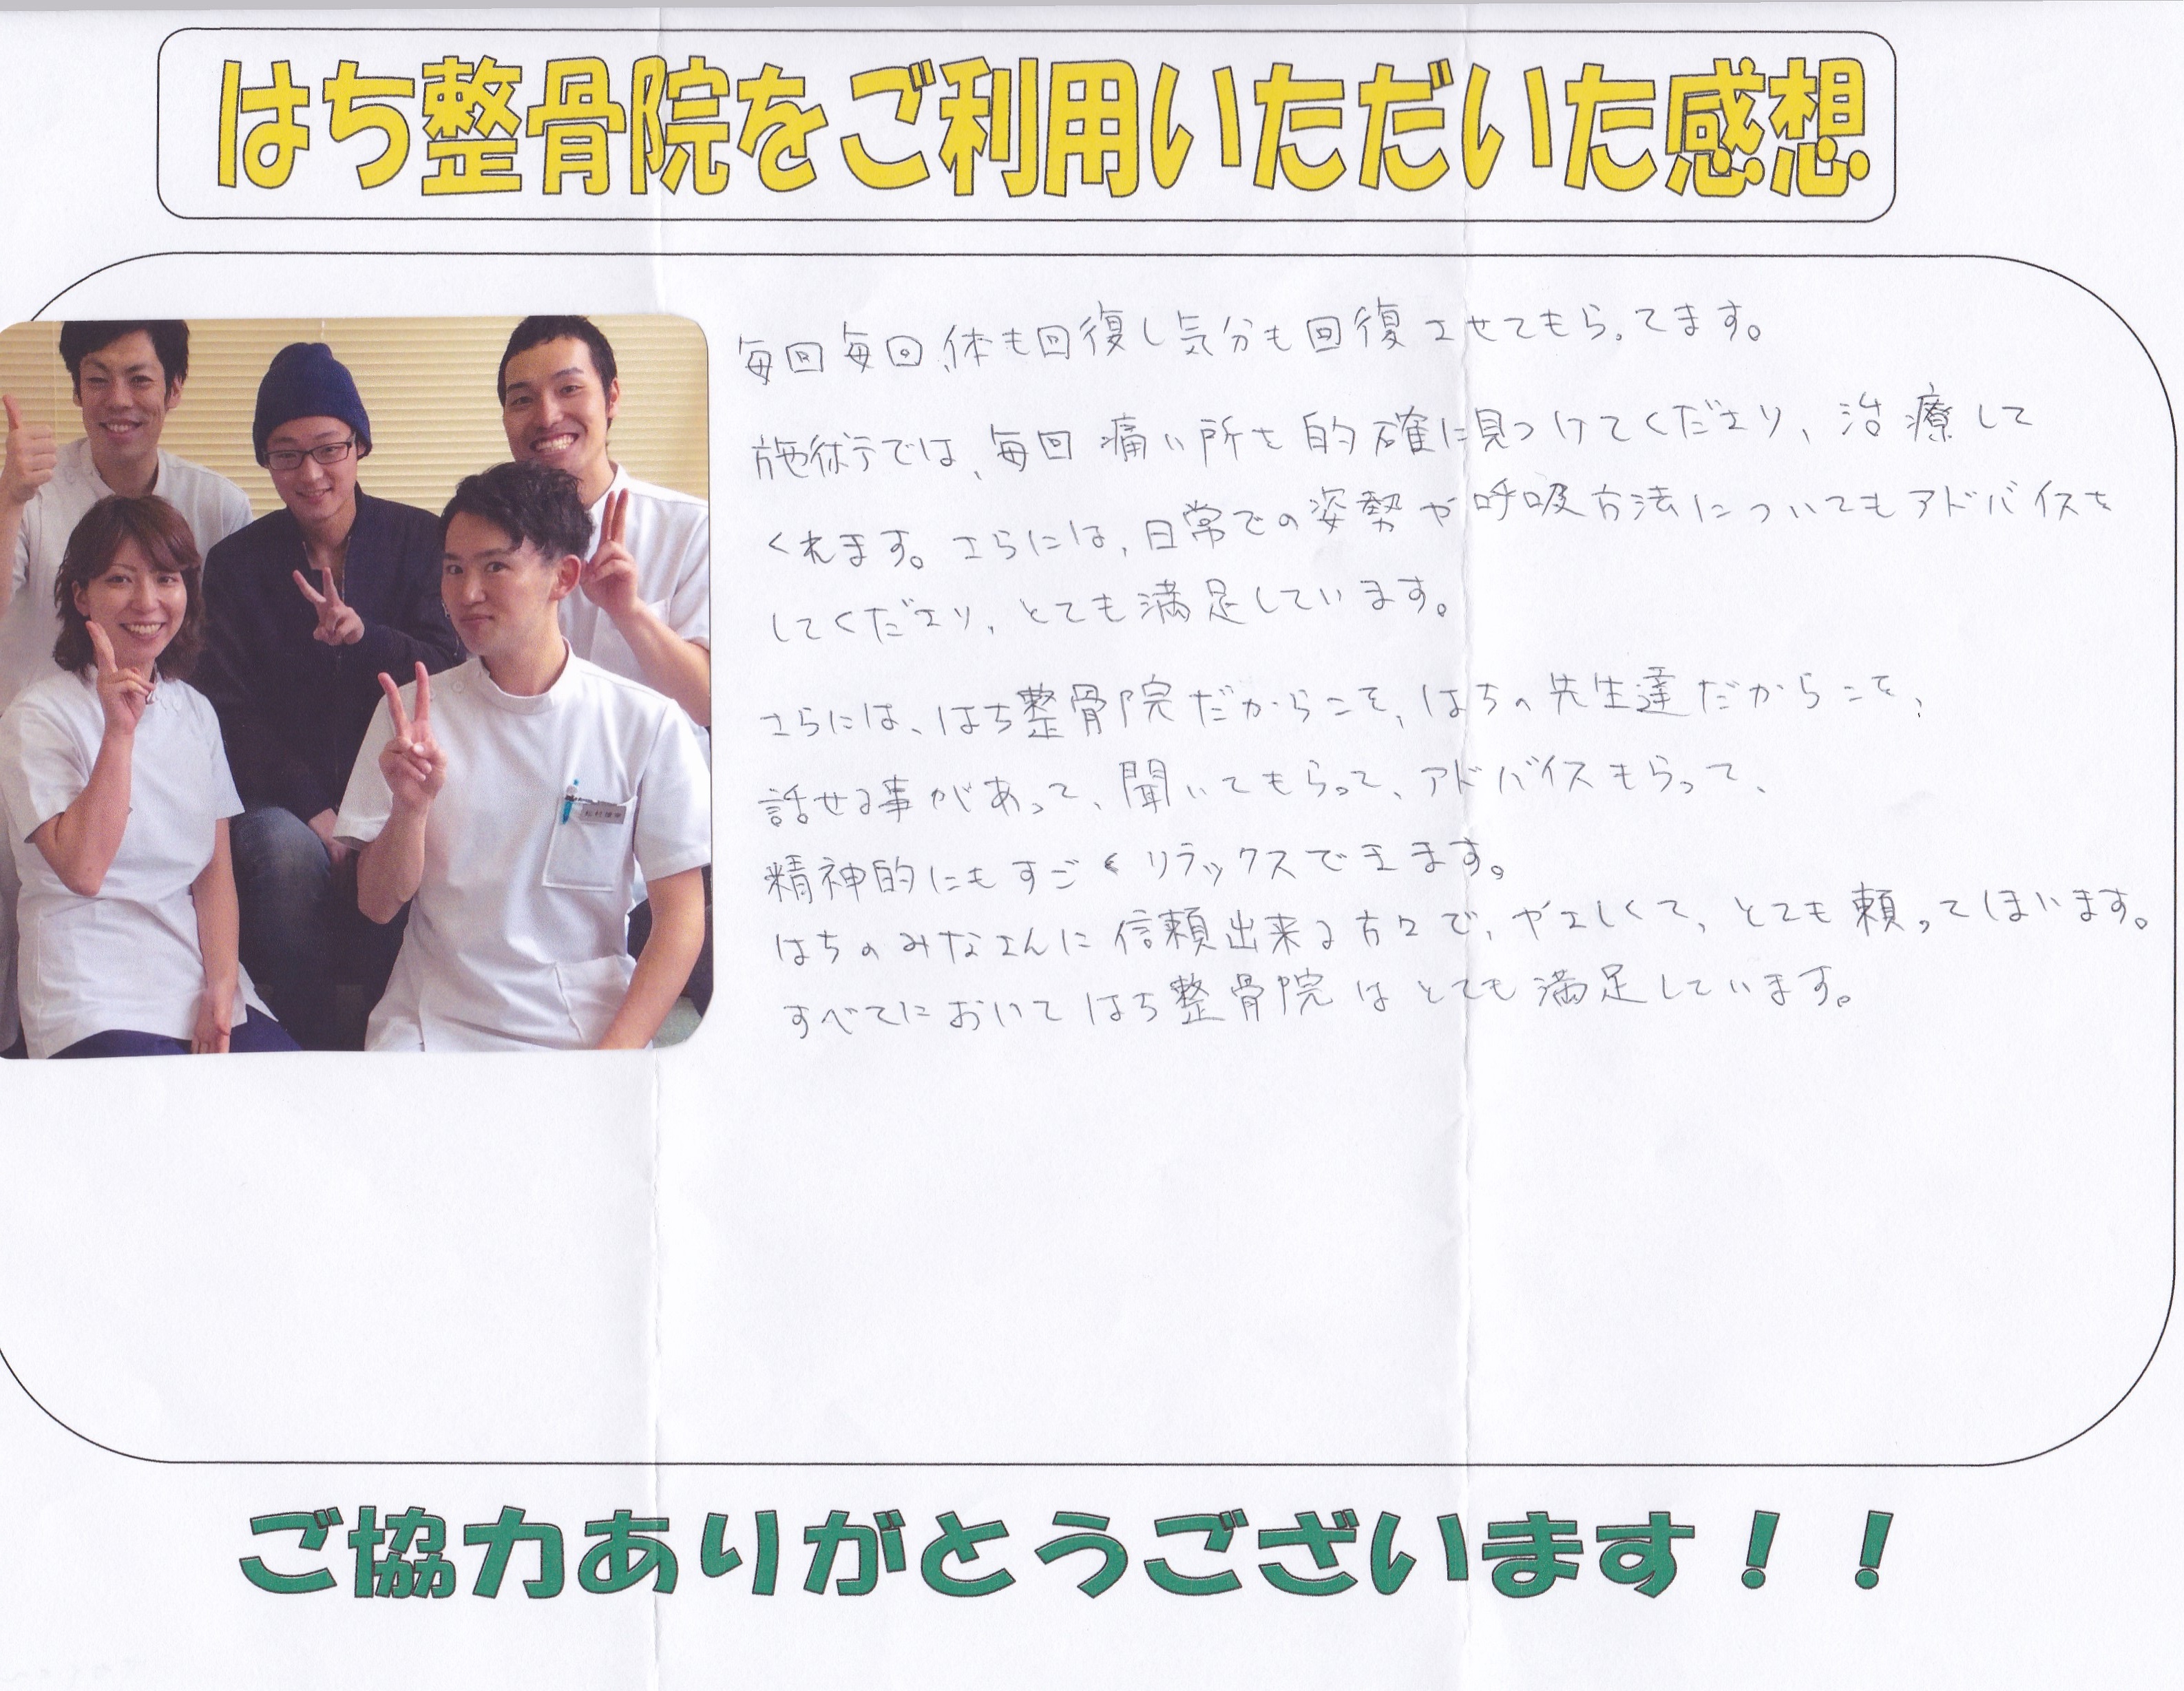 はち整骨院をご利用いただいた感想
毎回毎回、体も回復し気分も回復させてもらってます。
施術所では、毎回痛い所を的確に見つけてくださり、治療して
くれます。さらには、日常での姿勢や呼吸方法についてもアドバイスを
してくださり、とても満足しています。
さらには、はち整骨院だからこそ、はちの先生達だからこそ、
話せる事があって、聞いてもらって、アドバイスもらって、
精神的にもすごくリラックスできます。
はちのみなさんに信頼出来る方々で、やさしくて、とても頼ってしまいます。
すべてにおいてはち整骨院はとても満足しています。
ご協力ありがとうございます！！